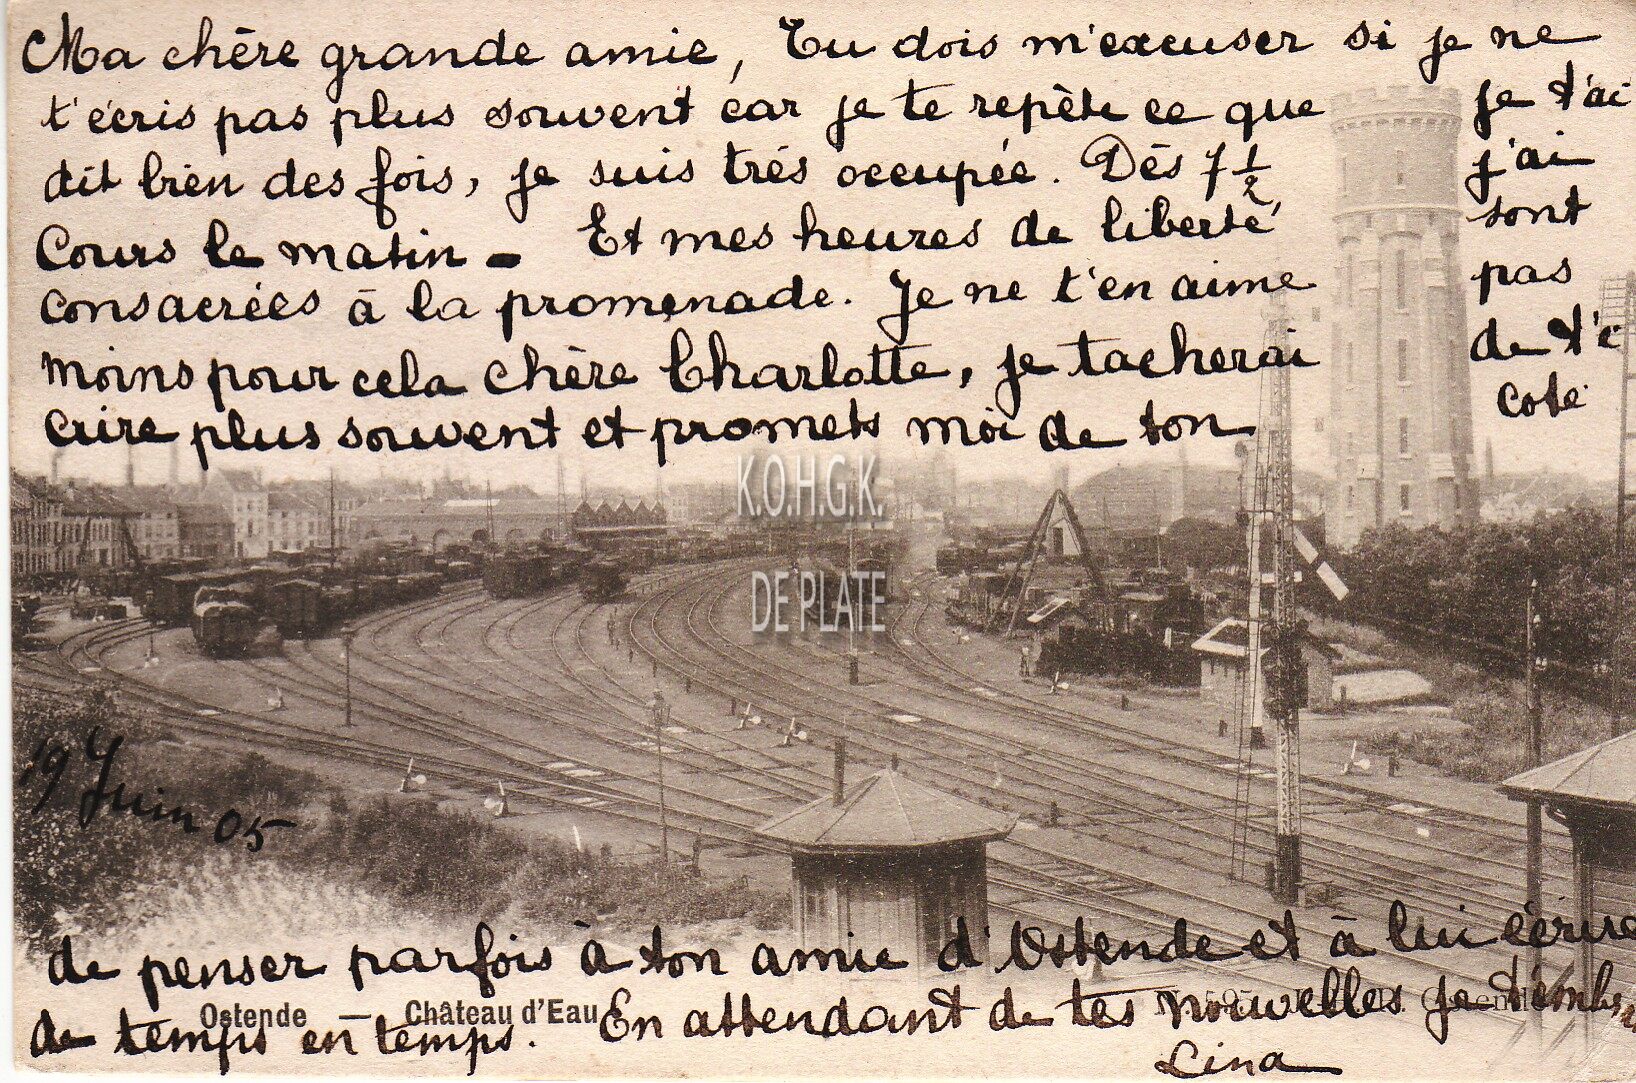 Ma chère grande amie, Tu dois m'excuser si je ne
t'écris pas plus souvent car je te repète ce que je t'ai
dit bien des fois, je suis trés occupée. Dès 7 1/2 j'ai
Cours le matin - Et mes heures de liberté sont
consacrées à la promenade. Je ne t'en aime pas
moins pour cela chère Charlotte, je tacherai de t'é
crire plus souvent et promets moi de ton coté
K.O.H.G.K.
DE PLATE
19 Juin 05
de penser parfois à ton amie d'Ostende et à lui écrire
de temps en temps. En attendant de tes nouvelles je
Ostende — Château d'Eau
Lina